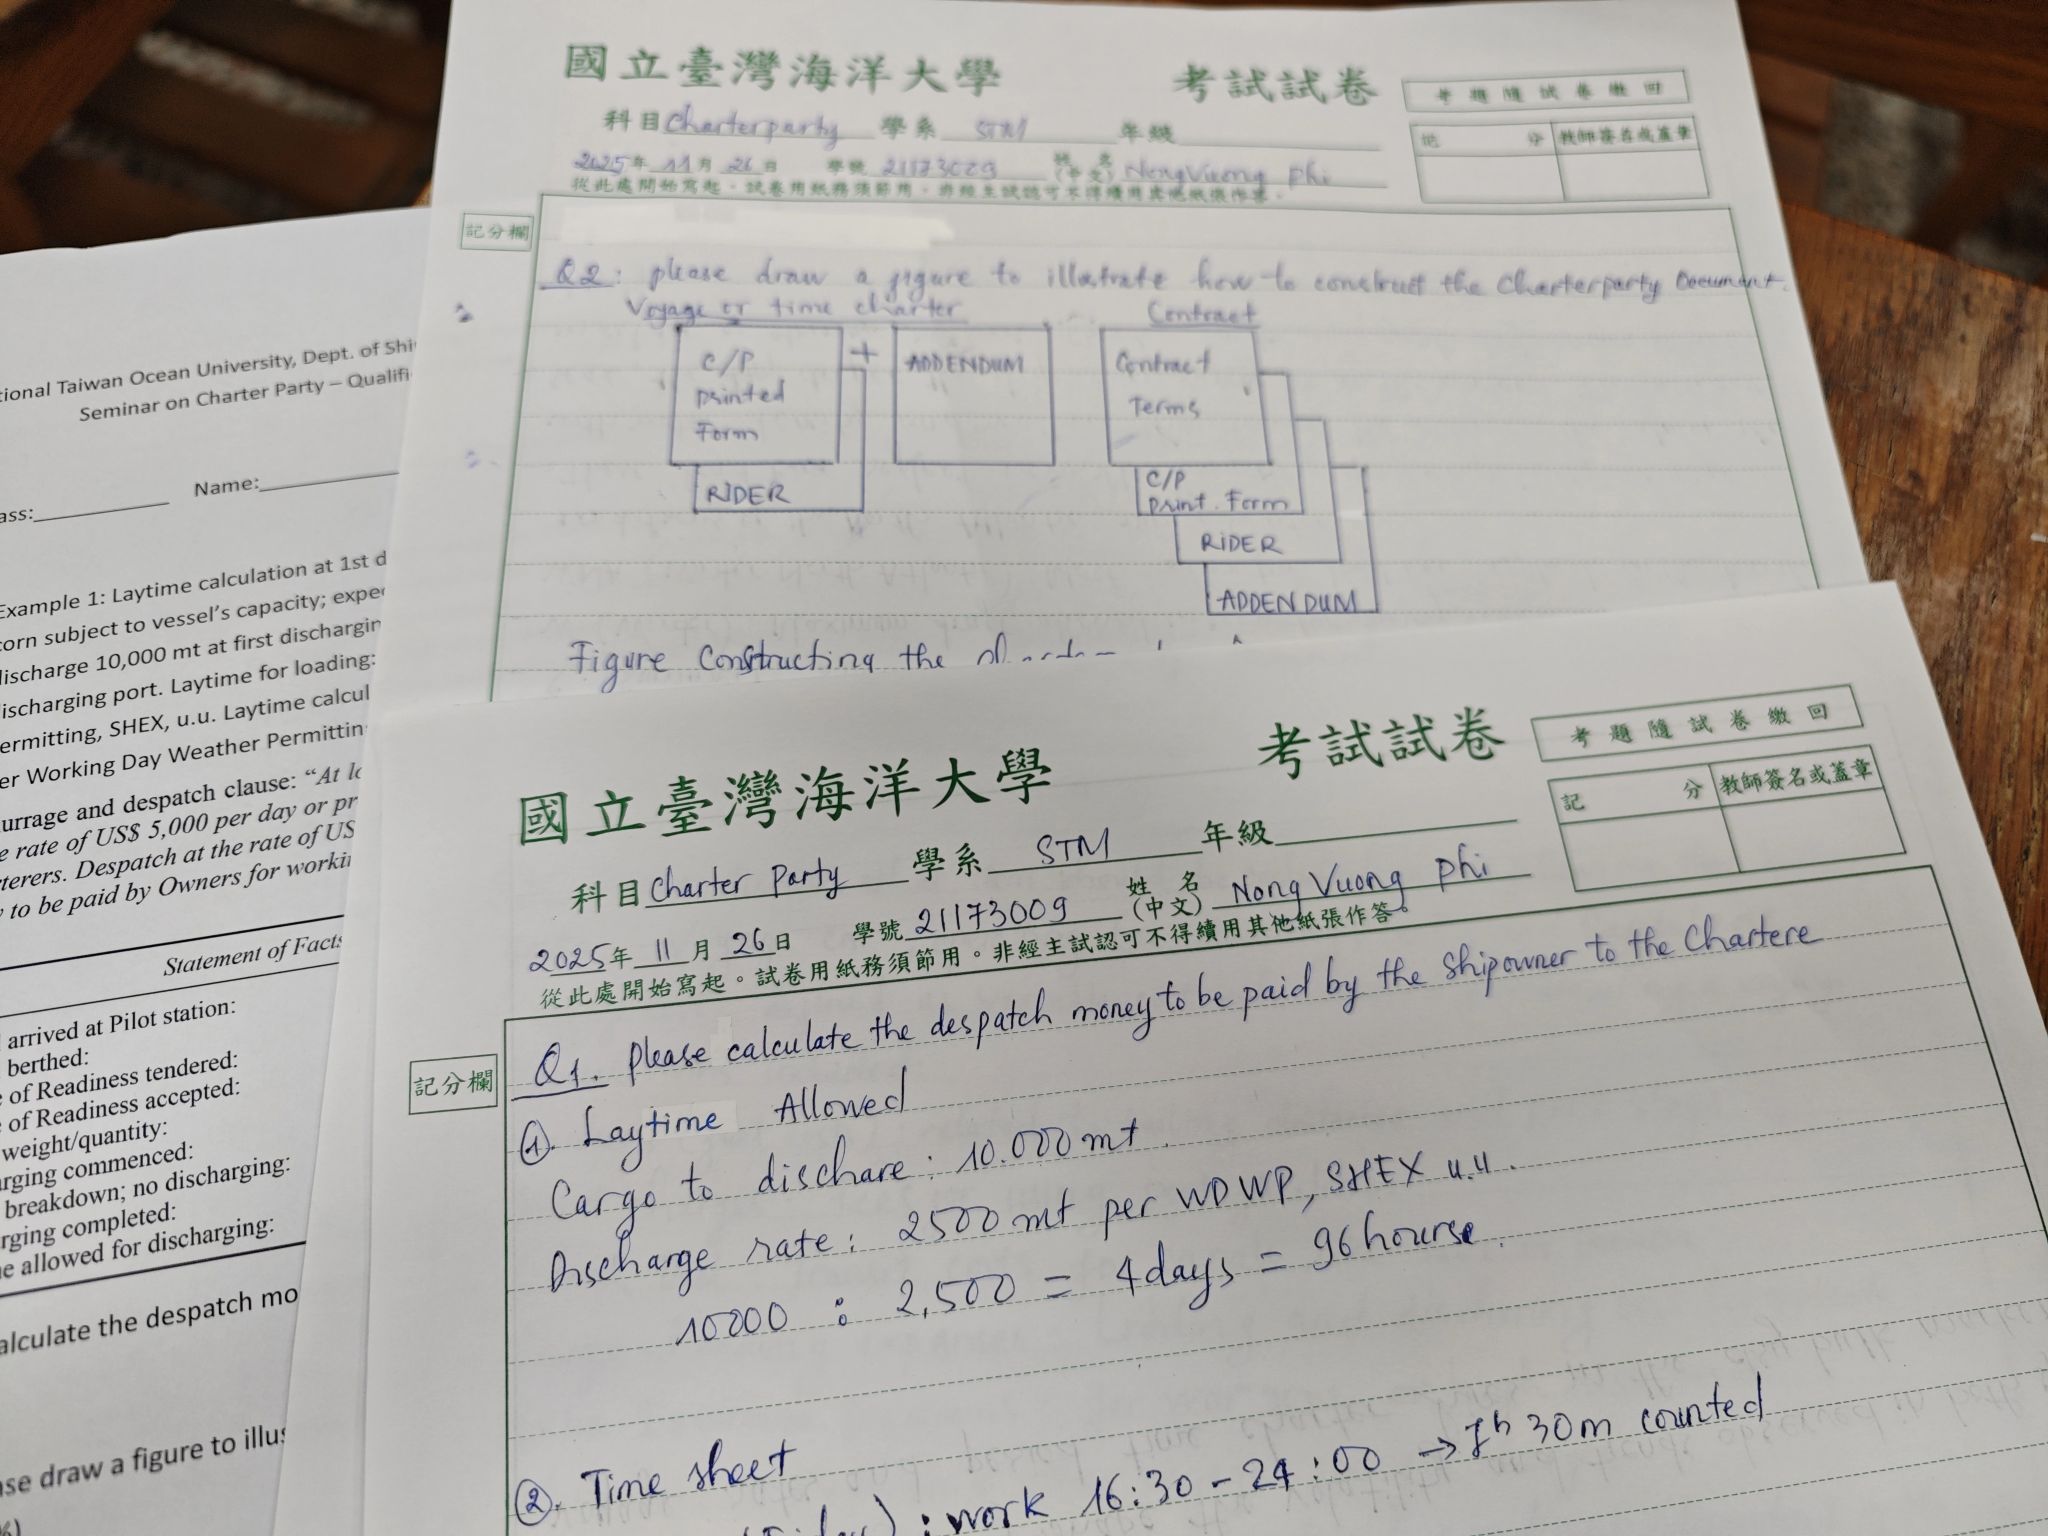 國立臺灣海洋大學 考試試卷
考題隨試卷繳回
科目 Charterparty 學系 STM 年級
記分 教師簽名或蓋章
2025年 11月 26日 學號 姓名(中文) NongVuong phi
從此處開始寫起。試卷用紙務須節用。非經主試認可不得續用其他紙張作答。
記分欄
Q2: please draw a figure to illustrate how to construct the Charterparty Document.
Voyage or time charter Contract
C/P printed Form + ADDENDUM
RIDER
Contract Terms
C/P print. Form
RIDER
ADDENDUM
Figure Constructing the
tional Taiwan Ocean University, Dept. of Shi
Seminar on Charter Party – Qualifi
ass: Name:
Example 1: Laytime calculation at 1st d
corn subject to vessel's capacity; expe
discharge 10,000 mt at first dischargin
discharging port. Laytime for loading:
ermitting, SHEX, u.u. Laytime calcul
er Working Day Weather Permittin
urrage and despatch clause: "At lo
e rate of US$ 5,000 per day or pr
rterers. Despatch at the rate of US
y to be paid by Owners for worki
Statement of Facts
arrived at Pilot station:
berthed:
e of Readiness tendered:
of Readiness accepted:
weight/quantity:
arging commenced:
breakdown; no discharging:
rging completed:
e allowed for discharging:
alculate the despatch mo
ase draw a figure to illus
%)
國立臺灣海洋大學 考試試卷
考題隨試卷繳回
科目 Charter Party 學系 STM 年級
記分 教師簽名或蓋章
2025年 11月 26日 學號 21173009 姓名(中文) Nong Vuong phi
從此處開始寫起。試卷用紙務須節用。非經主試認可不得續用其他紙張作答。
記分欄
Q1. please calculate the despatch money to be paid by the shipowner to the Chartere
①. Laytime Allowed
Cargo to dischare: 10.000 mt.
Discharge rate: 2500 mt per WDWP, SHEX u.u.
10000 : 2,500 = 4 days = 96 hourse.
②. Time sheet
: work 16:30 - 24:00 → 7h 30m counted